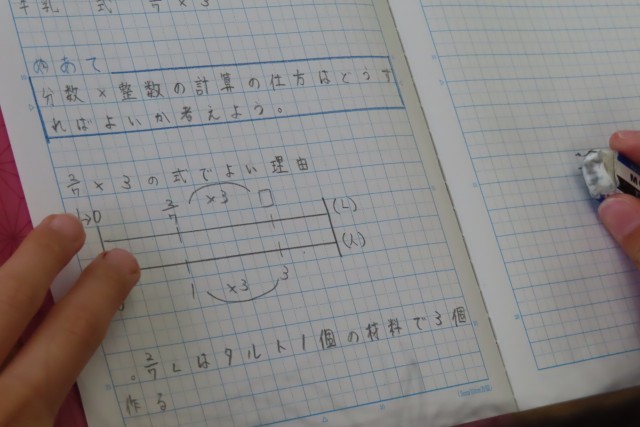 式 2/7×3
めあて
分数×整数の計算の仕方はどうす
ればよいか考えよう。
2/7×3の式でよい理由
0 2/7 ×3 □ (L)
(人)
1 ×3 3
。2/7Lはタルト1個の材料で3個
作る